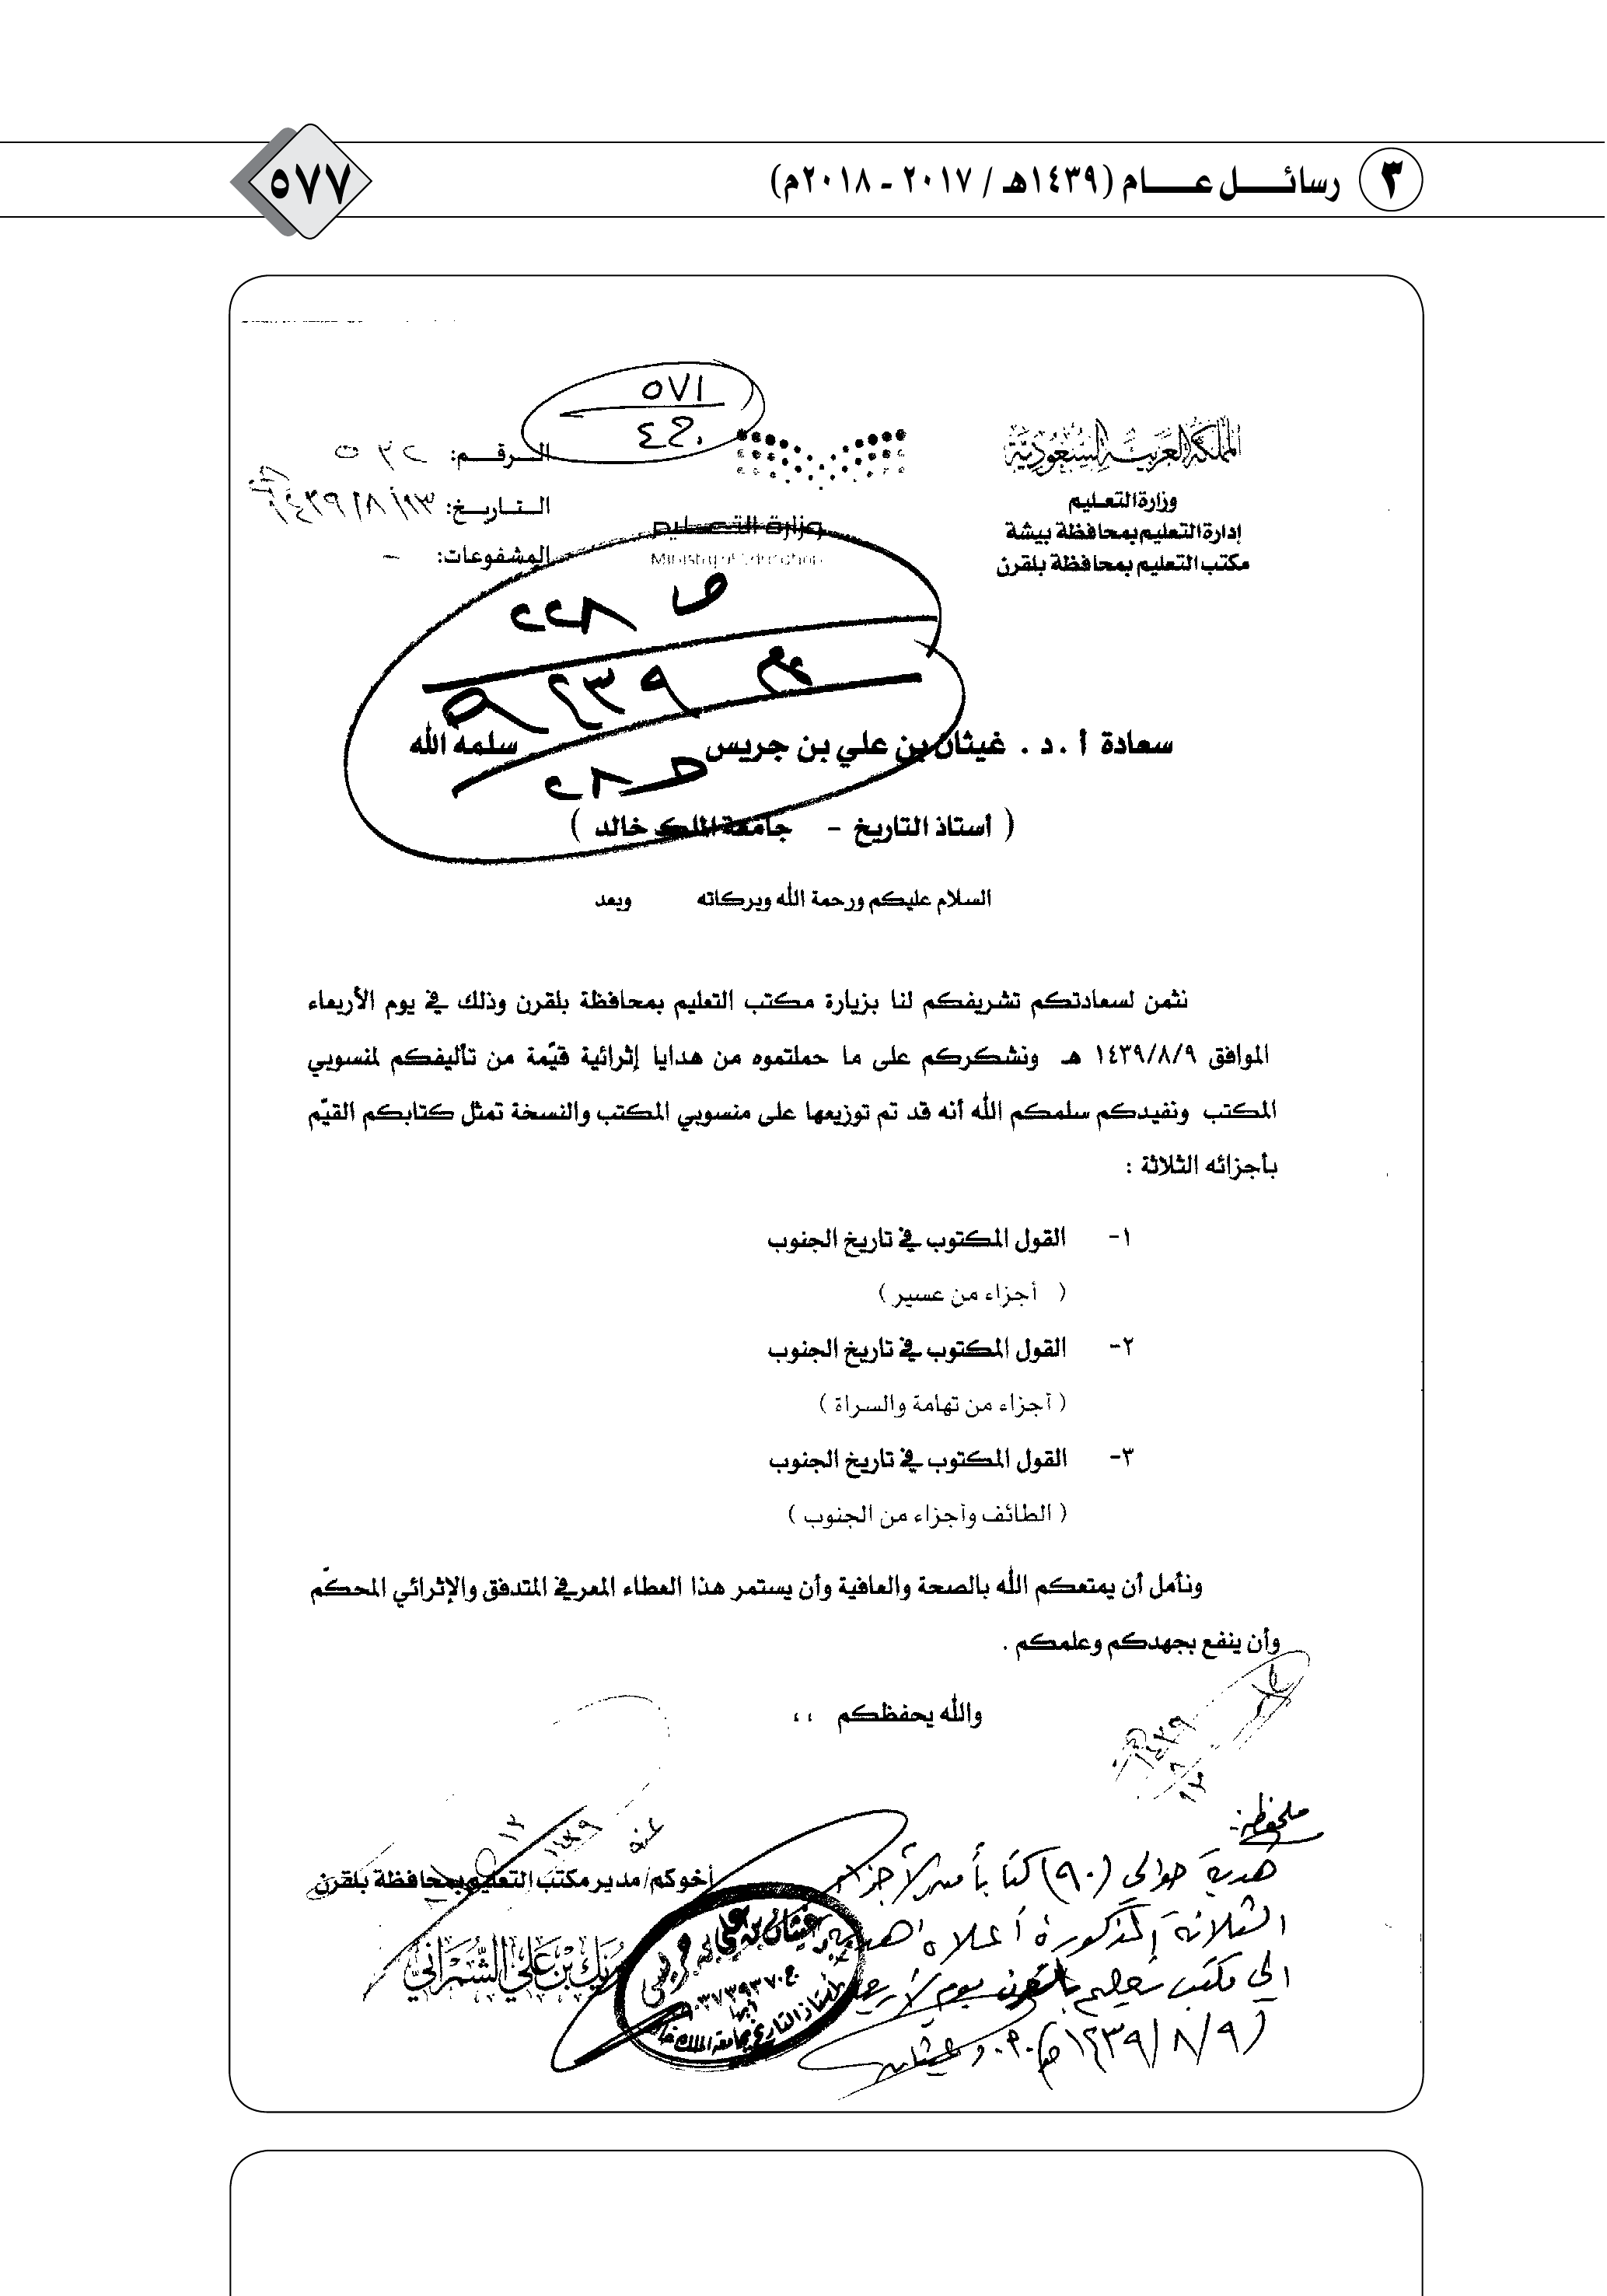 ٣ رسائل عام (١٤٣٩هـ / ٢٠١٧ - ٢٠١٨م)
٥٧٧
المملكة العربية السعودية
وزارة التعليم
إدارة التعليم بمحافظة بيشة
مكتب التعليم بمحافظة بلقرن
٥٧١
وزارة التعليم
Ministry of Education
الرقم:
التاريخ: ١٤٣٩/٨/١٣
المشفوعات: -
ص ٢٢٨
سعادة أ . د . غيثان بن علي بن جريس سلمه الله
( أستاذ التاريخ - جامعة الملك خالد )
السلام عليكم ورحمة الله وبركاته وبعد
نثمن لسعادتكم تشريفكم لنا بزيارة مكتب التعليم بمحافظة بلقرن وذلك في يوم الأربعاء
الموافق ١٤٣٩/٨/٩ هـ ونشكركم على ما حملتموه من هدايا إثرائية قيّمة من تأليفكم لمنسوبي
المكتب ونفيدكم سلمكم الله أنه قد تم توزيعها على منسوبي المكتب والنسخة تمثل كتابكم القيّم
بأجزائه الثلاثة :
١- القول المكتوب في تاريخ الجنوب
( أجزاء من عسير )
٢- القول المكتوب في تاريخ الجنوب
( أجزاء من تهامة والسراة )
٣- القول المكتوب في تاريخ الجنوب
( الطائف وأجزاء من الجنوب )
ونأمل أن يمتعكم الله بالصحة والعافية وأن يستمر هذا العطاء المعرفي المتدفق والإثرائي المحكّم
وأن ينفع بجهدكم وعلمكم .
والله يحفظكم ،،
أخوكم/ مدير مكتب التعليم بمحافظة بلقرن
بن علي الشمراني
ملحوظة:
هدية حوالي (٩٠) كتابا من الأجزاء
الثلاثة المذكورة أعلاه
الى مكتب تعليم بلقرن يوم الأربعاء
(١٤٣٩/٨/٩هـ) أ.د. غيثان
غيثان بن علي بن جريس
أبها
أستاذ التاريخ بجامعة الملك خالد